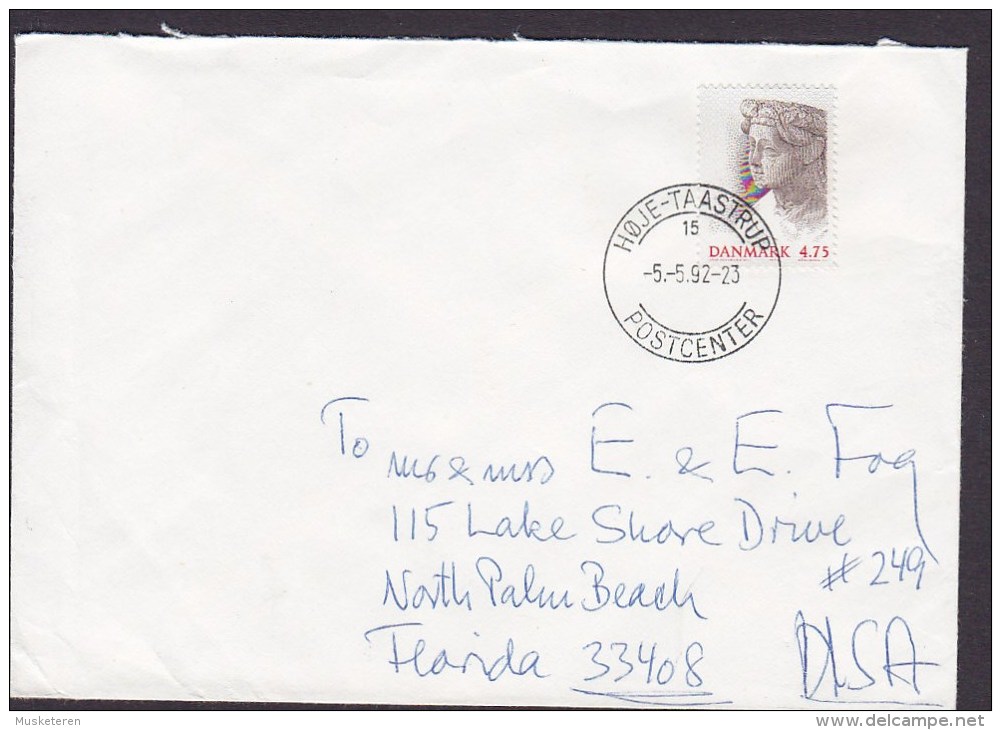 HØJE-TAASTRUP
15
DANMARK 4.75
-5.-5.92-23
POSTCENTER
To
mr & mrs E. & E. Fog
115 Lake Shore Drive
# 249
North Palm Beach
Florida 33408 USA
Musketeren
delcampe.net